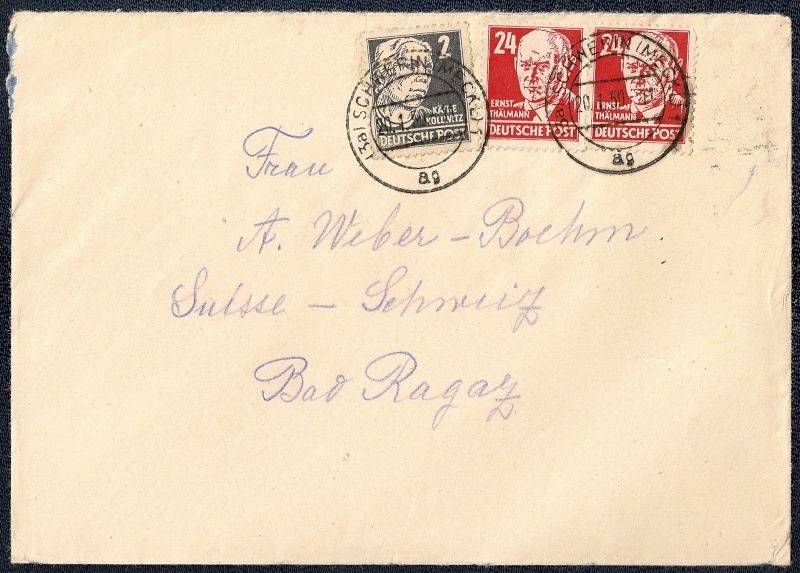 2
KÄTHE
KOLLWITZ
DEUTSCHE POST
24
ERNST
THÄLMANN
DEUTSCHE POST
24
ERNST
THÄLMANN
DEUTSCHE POST
(3a) SCHWERIN (MECKL)
20.1.50
ag
SCHWERIN (MECKL) 1
20.1.50
ag
Frau
A. Weber-Boehm.
Suisse - Schweiz
Bad Ragaz